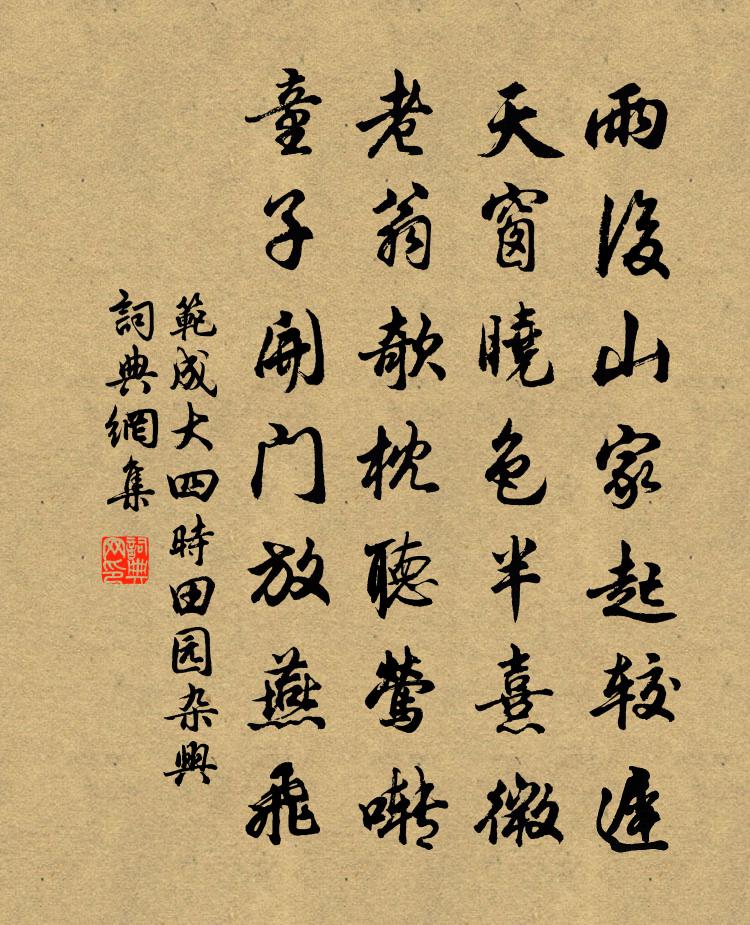 雨後山家起較遲
天窗曉色半熹微
老翁欹枕聽鶯囀
童子開门放燕飛
範成大四時田园杂興
詞典網集
詞典网印